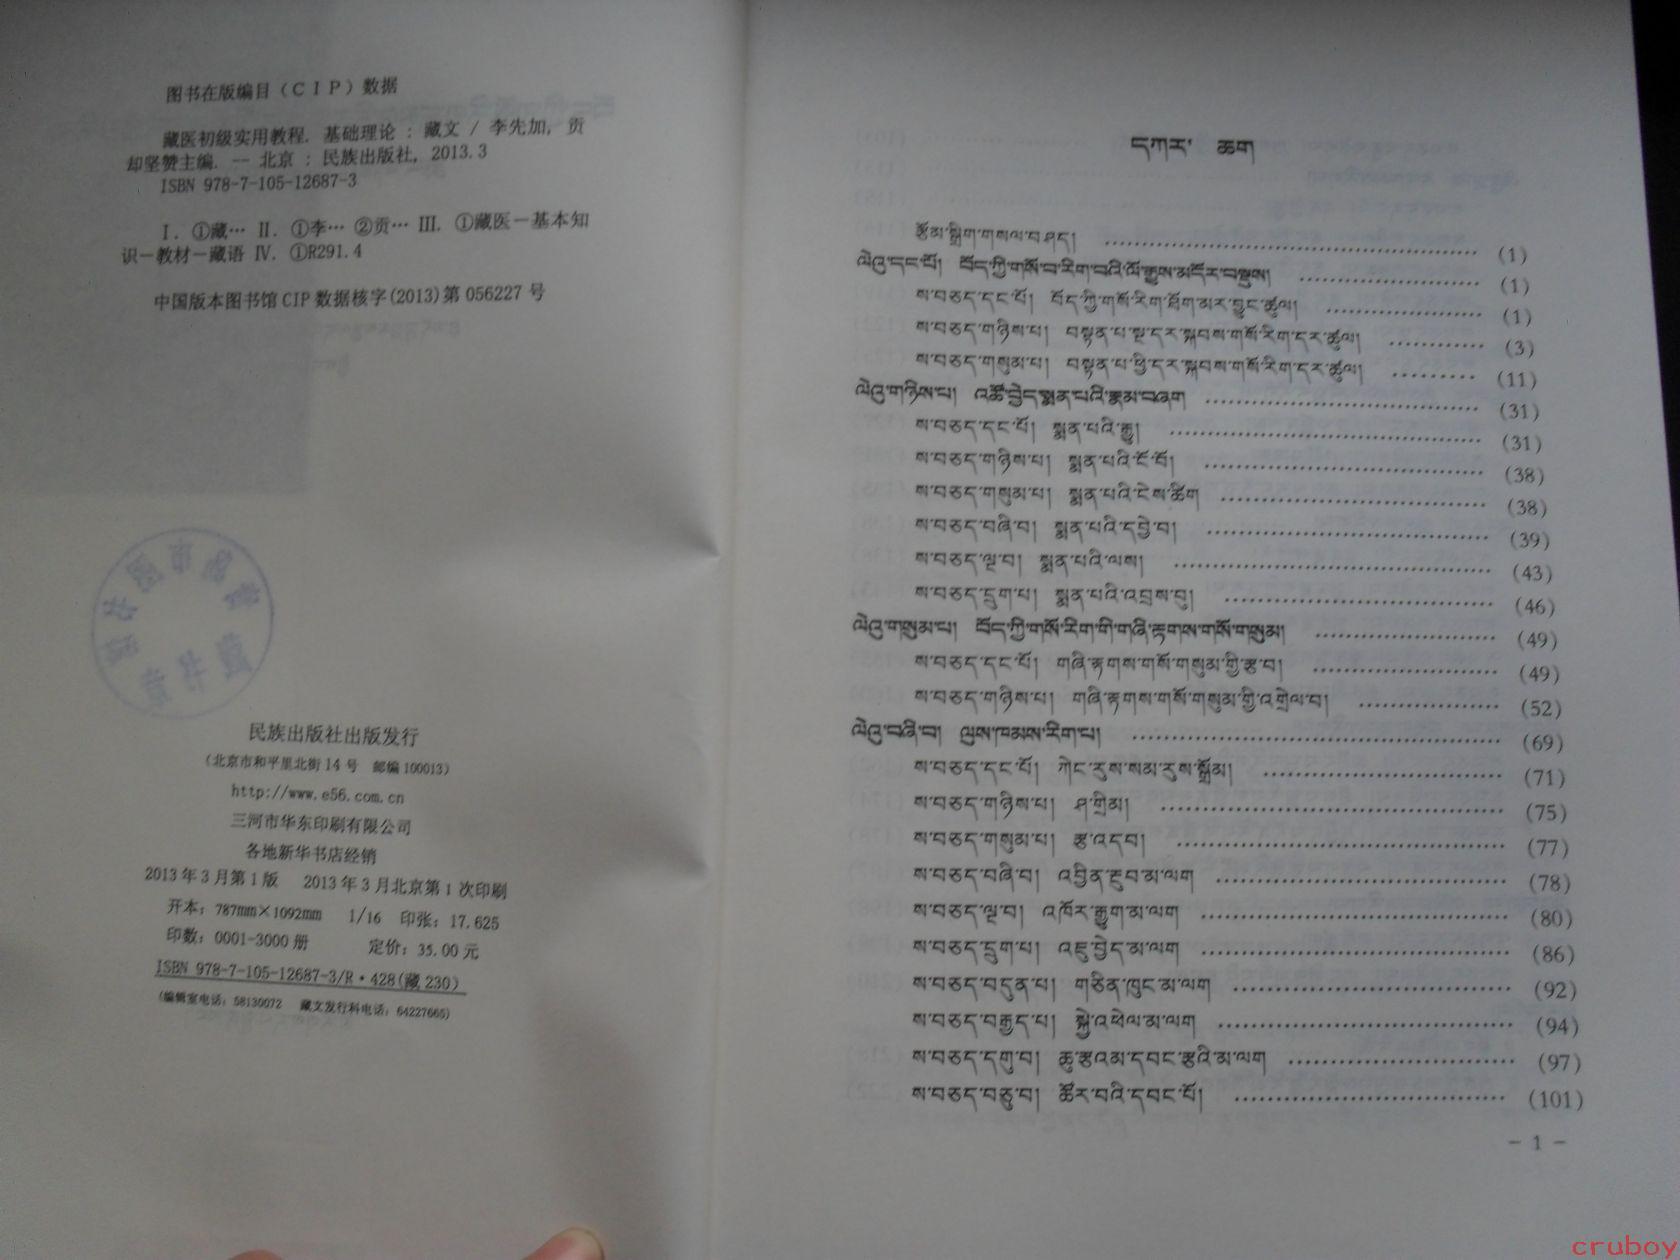 图书在版编目（ＣＩＰ）数据
藏医初级实用教程. 基础理论 : 藏文 / 李先加, 贡
却坚赞主编. -- 北京 : 民族出版社, 2013.3
ISBN 978-7-105-12687-3
Ⅰ. ①藏… Ⅱ. ①李… ②贡… Ⅲ. ①藏医－基本知
识－教材－藏语 Ⅳ. ①R291.4
中国版本图书馆CIP数据核字(2013)第056227号
民族出版社出版发行
（北京市和平里北街14号 邮编100013）
http://www.e56.com.cn
三河市华东印刷有限公司
各地新华书店经销
2013年3月第1版 2013年3月北京第1次印刷
开本: 787mm×1092mm 1/16 印张: 17.625
印数: 0001-3000册 定价: 35.00元
ISBN 978-7-105-12687-3/R·428(藏230)
(编辑室电话: 58130072 藏文发行科电话: 64227665)
དཀར་ ཆག
རྩོམ་སྒྲིག་གསལ་བཤད། …… (1)
ལེའུ་དང་པོ། བོད་ཀྱི་གསོ་བ་རིག་བའི་ལོ་རྒྱུས་མདོར་བསྡུས། …… (1)
ས་བཅད་དང་པོ། བོད་ཀྱི་གསོ་རིག་ཐོག་མར་བྱུང་ཚུལ། …… (1)
ས་བཅད་གཉིས་པ། བསྟན་པ་སྔ་དར་སྐབས་གསོ་རིག་དར་ཚུལ། …… (3)
ས་བཅད་གསུམ་པ། བསྟན་པ་ཕྱི་དར་སྐབས་གསོ་རིག་དར་ཚུལ། …… (11)
ལེའུ་གཉིས་པ། འཚོ་བྱེད་སྨན་པའི་རྣམ་བཞག …… (31)
ས་བཅད་དང་པོ། སྨན་པའི་རྒྱུ། …… (31)
ས་བཅད་གཉིས་པ། སྨན་པའི་ངོ་བོ། …… (38)
ས་བཅད་གསུམ་པ། སྨན་པའི་ངེས་ཚིག …… (38)
ས་བཅད་བཞི་བ། སྨན་པའི་དབྱེ་བ། …… (39)
ས་བཅད་ལྔ་བ། སྨན་པའི་ལས། …… (43)
ས་བཅད་དྲུག་པ། སྨན་པའི་འབྲས་བུ། …… (46)
ལེའུ་གསུམ་པ། བོད་ཀྱི་གསོ་རིག་གི་གཞི་རྟགས་གསོ་གསུམ། …… (49)
ས་བཅད་དང་པོ། གཞི་རྟགས་གསོ་གསུམ་གྱི་རྩ་བ། …… (49)
ས་བཅད་གཉིས་པ། གཞི་རྟགས་གསོ་གསུམ་གྱི་འགྲེལ་བ། …… (52)
ལེའུ་བཞི་བ། ལུས་ཁམས་རིག་པ། …… (69)
ས་བཅད་དང་པོ། ཀེང་རུས་སམ་རུས་སྒྲོམ། …… (71)
ས་བཅད་གཉིས་པ། ཤ་གྲིམ། …… (75)
ས་བཅད་གསུམ་པ། རྩ་འདབ། …… (77)
ས་བཅད་བཞི་བ། འབྱིན་རྔུབ་མ་ལག …… (78)
ས་བཅད་ལྔ་བ། འཁོར་རྒྱུག་མ་ལག …… (80)
ས་བཅད་དྲུག་པ། འཇུ་བྱེད་མ་ལག …… (86)
ས་བཅད་བདུན་པ། གཅིན་ཁུང་མ་ལག …… (92)
ས་བཅད་བརྒྱད་པ། སྐྱེ་འཕེལ་མ་ལག …… (94)
ས་བཅད་དགུ་བ། ཆུ་རྩའམ་དབང་རྩའི་མ་ལག …… (97)
ས་བཅད་བཅུ་བ། ཚོར་བའི་དབང་པོ། …… (101)
- 1 -
cruboy